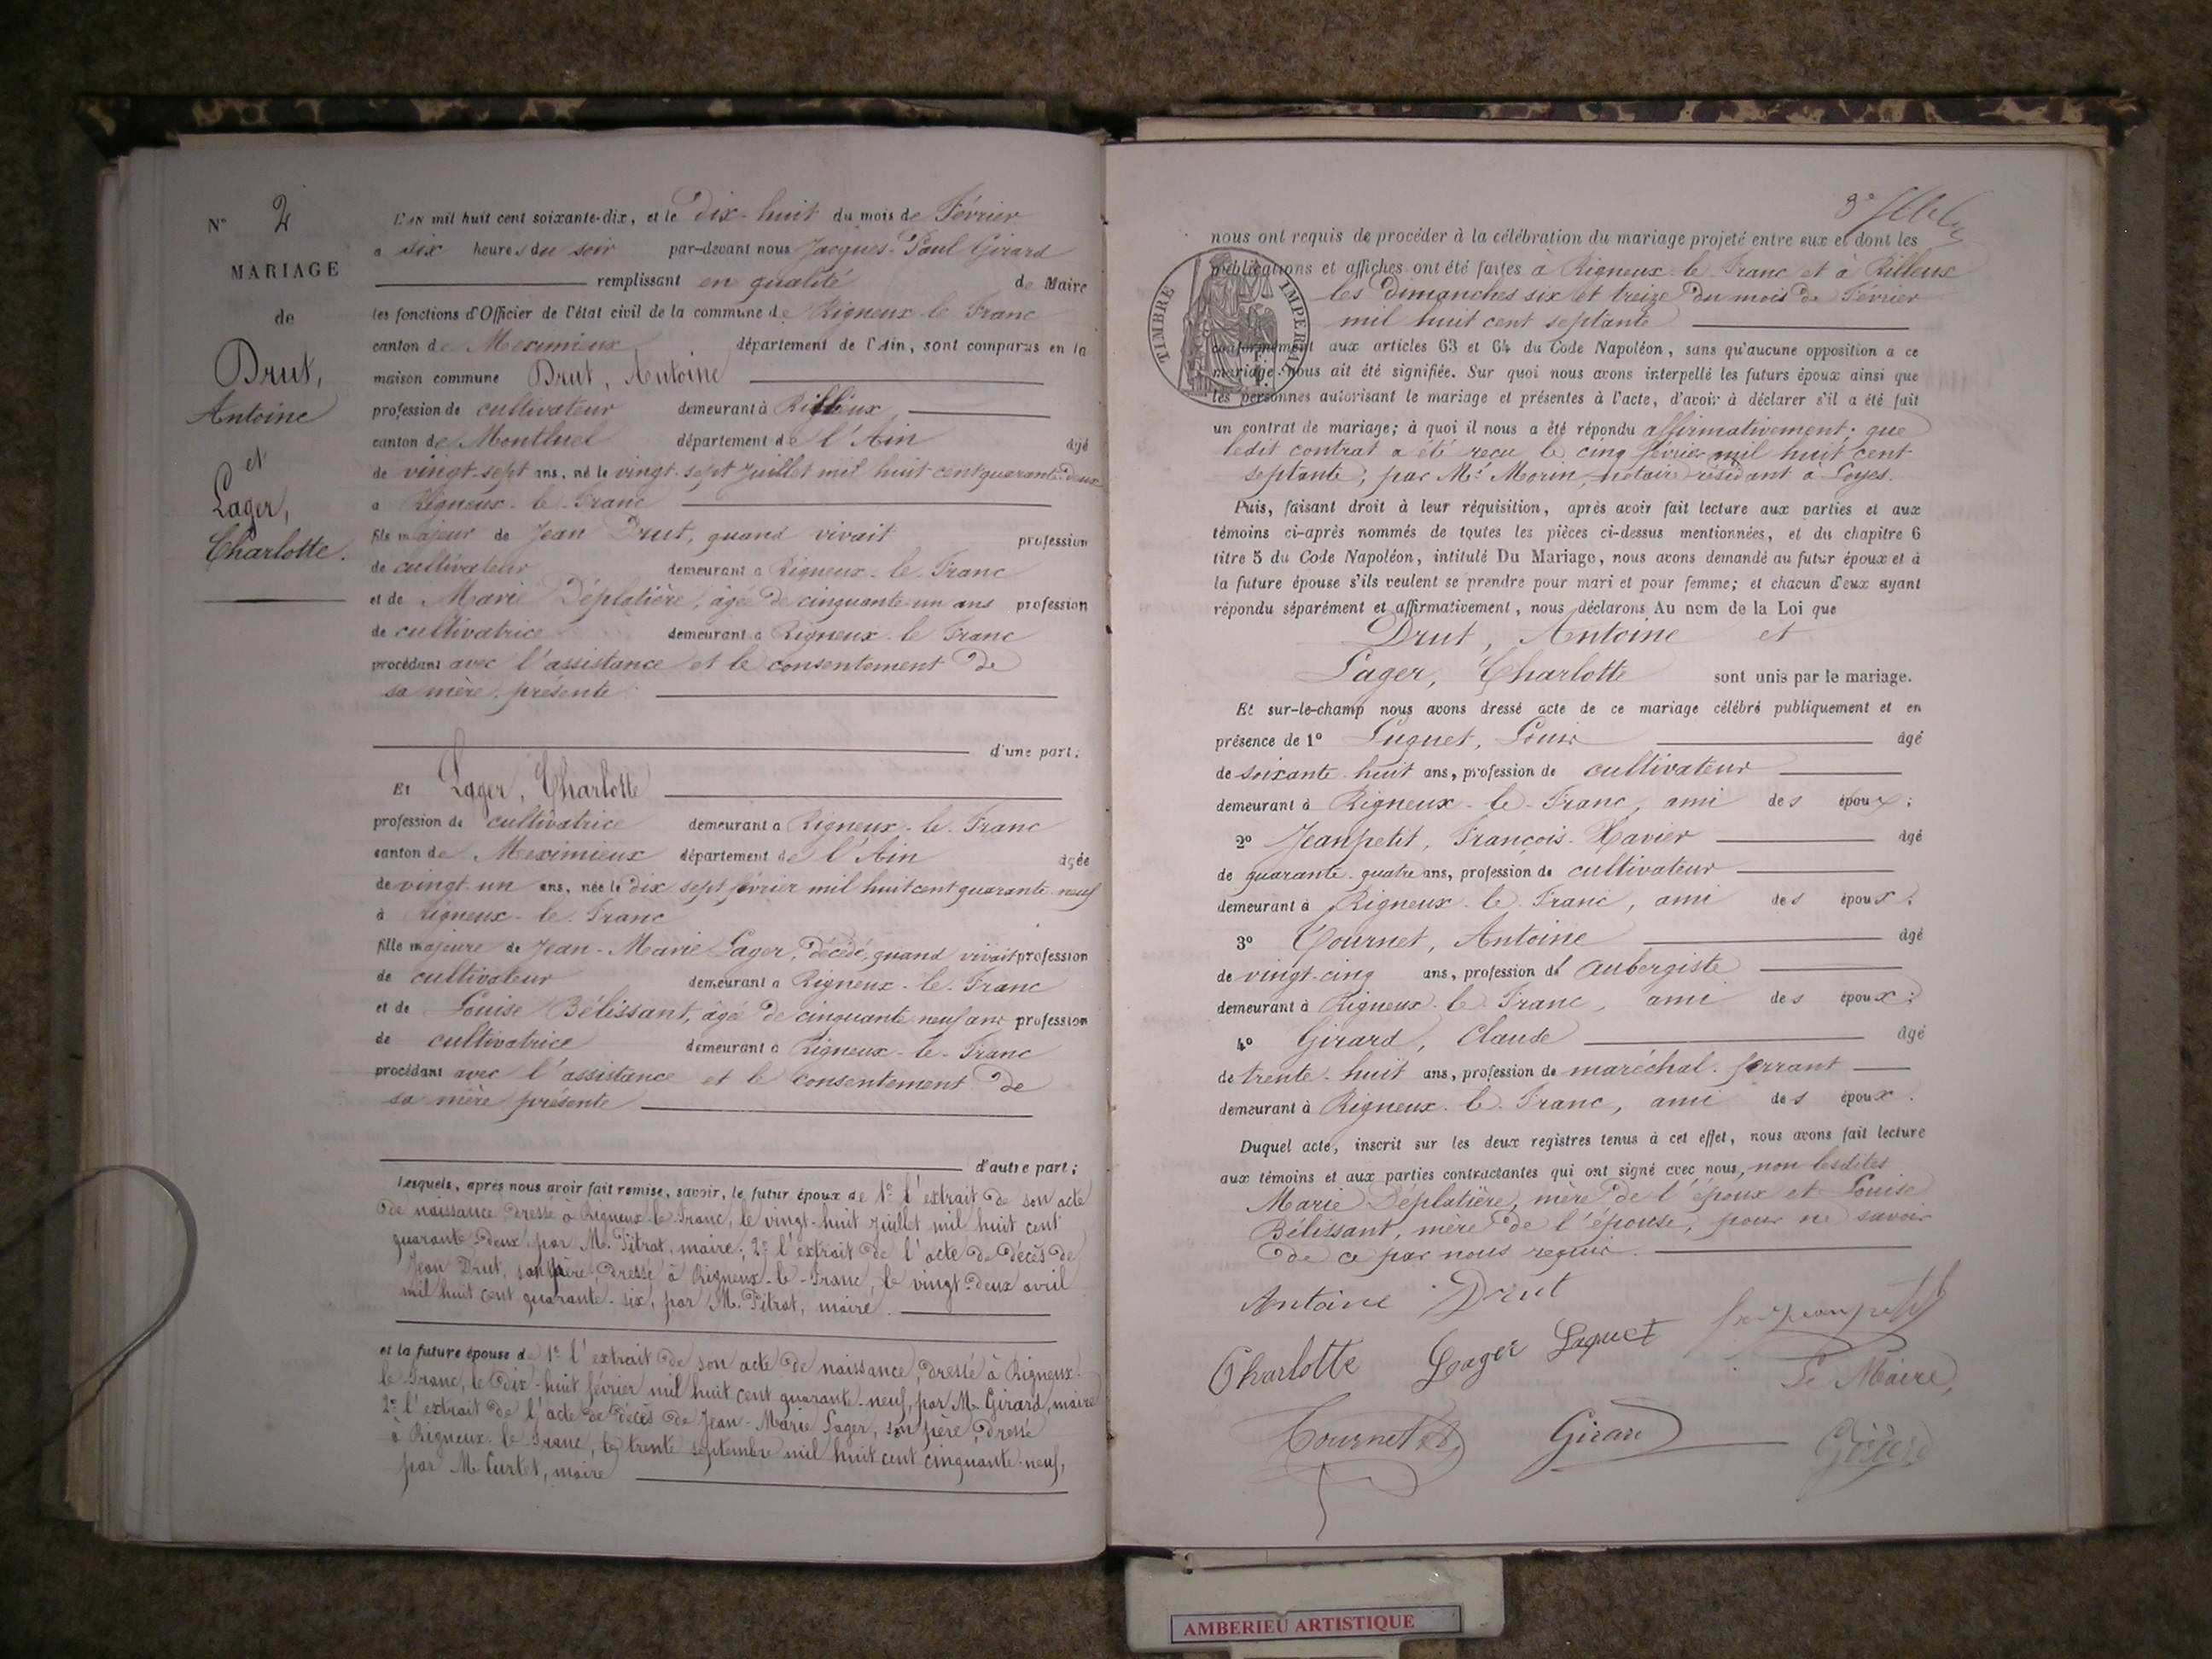 N° 2
MARIAGE
de
Drut,
Antoine
et
Lager,
Charlotte.
L'an mil huit cent soixante-dix, et le dix-huit du mois de Février
a six heures du soir par-devant nous Jacques-Paul Girard
remplissant en qualité de Maire
les fonctions d'Officier de l'état civil de la commune de Rigneux-le-Franc
canton de Meximieux département de l'Ain, sont comparus en la
maison commune Drut, Antoine
profession de cultivateur demeurant à Rillieux,
canton de Montluel département de l'Ain âgé
de vingt-sept ans, né le vingt-sept juillet mil huit cent quarante-deux
a Rigneux-le-Franc
fils majeur de Jean Drut, quand vivait profession
de cultivateur demeurant a Rigneux-le-Franc
et de Marie Déplatière, âgée de cinquante-un ans profession
de cultivatrice demeurant a Rigneux-le-Franc
procédant avec l'assistance et le consentement de
sa mère présente
d'une part;
Et Lager, Charlotte
profession de cultivatrice demeurant a Rigneux-le-Franc
canton de Meximieux département de l'Ain âgée
de vingt-un ans, née le dix-sept février mil huit cent quarante-neuf
à Rigneux-le-Franc
fille majeure de Jean-Marie Lager, décédé, quand vivait profession
de cultivateur demeurant a Rigneux-le-Franc
et de Louise Bélissant, âgée de cinquante-neuf ans profession
de cultivatrice demeurant à Rigneux-le-Franc
procédant avec l'assistance et le consentement de
sa mère présente
d'autre part;
Lesquels, après nous avoir fait remise, savoir, le futur époux de 1° l'extrait de son acte
de naissance dressé à Rigneux-le-Franc, le vingt-huit juillet mil huit cent
quarante-deux par M. Pitrat, maire; 2° l'extrait de l'acte de décès de
Jean Drut, son père, dressé à Rigneux-le-Franc, le vingt-deux avril
mil huit cent quarante-six, par M. Pitrat, maire.
et la future épouse de 1° l'extrait de son acte de naissance, dressé à Rigneux-
le-Franc, le dix-huit février mil huit cent quarante-neuf, par M. Girard, maire
2° l'extrait de l'acte de décès de Jean-Marie Lager, son père, dressé
à Rigneux-le-Franc, le trente septembre mil huit cent cinquante-neuf,
par M. Curtet, maire
nous ont requis de procéder à la célébration du mariage projeté entre eux et dont les
publications et affiches ont été faites à Rigneux-le-Franc et à Rillieux
les dimanches six et treize du mois de Février
mil huit cent septante
TIMBRE IMPERIAL
conformément aux articles 63 et 64 du Code Napoléon, sans qu'aucune opposition a ce
mariage nous ait été signifiée. Sur quoi nous avons interpellé les futurs époux ainsi que
les personnes autorisant le mariage et présentes à l'acte, d'avoir à déclarer s'il a été fait
un contrat de mariage; à quoi il nous a été répondu affirmativement; que
ledit contrat a été reçu le cinq février mil huit cent
septante, par Me Morin, notaire résidant à Loyes.
Puis, faisant droit à leur réquisition, après avoir fait lecture aux parties et aux
témoins ci-après nommés de toutes les pièces ci-dessus mentionnées, et du chapitre 6
titre 5 du Code Napoléon, intitulé Du Mariage, nous avons demandé au futur époux et à
la future épouse s'ils veulent se prendre pour mari et pour femme; et chacun d'eux ayant
répondu séparément et affirmativement, nous déclarons Au nom de la Loi que
Drut, Antoine et
Lager, Charlotte sont unis par le mariage.
Et sur-le-champ nous avons dressé acte de ce mariage célébré publiquement et en
présence de 1° Luquet, Louis âgé
de soixante-huit ans, profession de cultivateur
demeurant à Rigneux-le-Franc, ami des époux;
2° Jeanpetit, François-Xavier âgé
de quarante-quatre ans, profession de cultivateur
demeurant à Rigneux-le-Franc, ami des époux;
3° Tournet, Antoine âgé
de vingt-cinq ans, profession de aubergiste
demeurant à Rigneux-le-Franc, ami des époux;
4° Girard, Claude âgé
de trente-huit ans, profession de maréchal-ferrant
demeurant à Rigneux-le-Franc, ami des époux.
Duquel acte, inscrit sur les deux registres tenus à cet effet, nous avons fait lecture
aux témoins et aux parties contractantes qui ont signé avec nous, non lesdites
Marie Déplatière, mère de l'époux et Louise
Bélissant, mère de l'épouse, pour ne savoir
de ce par nous requis.
Antoine Drut
Charlotte Lager Luquet fx Jeanpetit
Le Maire,
Tournet A Girard Girard
AMBERIEU ARTISTIQUE